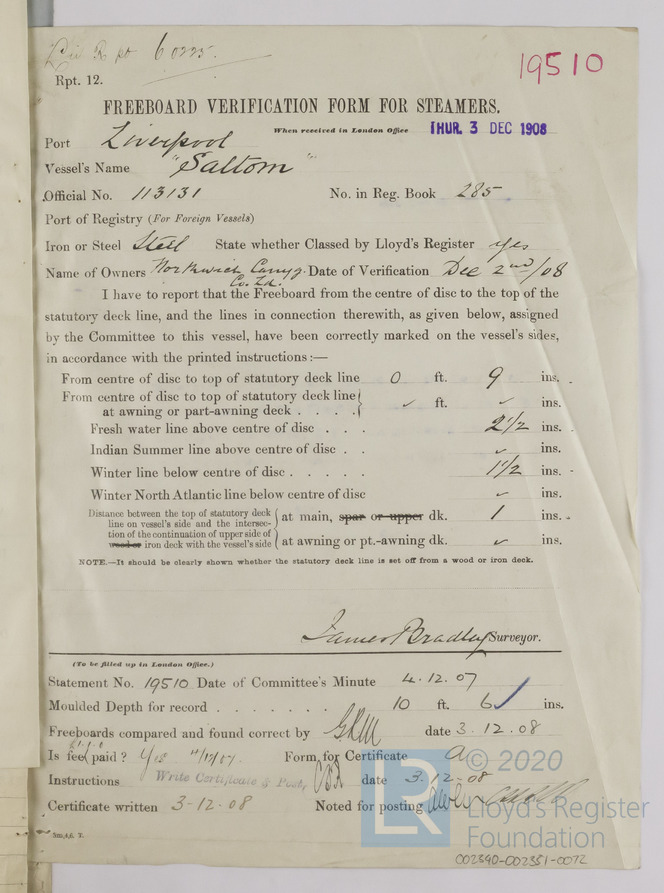 Rpt 60225.
19510
Rpt. 12.
FREEBOARD VERIFICATION FORM FOR STEAMERS.
When received in London Office THUR. 3 DEC 1908
Port Liverpool
Vessel's Name "Saltom"
Official No. 113131 No. in Reg. Book 285
Port of Registry (For Foreign Vessels)
Iron or Steel Steel State whether Classed by Lloyd's Register Yes
Name of Owners Northwich Carryg. Co. Ld. Date of Verification Dec 2nd/08
I have to report that the Freeboard from the centre of disc to the top of the
statutory deck line, and the lines in connection therewith, as given below, assigned
by the Committee to this vessel, have been correctly marked on the vessel's sides,
in accordance with the printed instructions:—
From centre of disc to top of statutory deck line 0 ft. 9 ins.
From centre of disc to top of statutory deck line
at awning or part-awning deck . . . . ✓ ft. ✓ ins.
Fresh water line above centre of disc . . . 2 1/2 ins.
Indian Summer line above centre of disc . . ✓ ins.
Winter line below centre of disc . . . . . 1 1/2 ins.
Winter North Atlantic line below centre of disc ✓ ins.
Distance between the top of statutory deck
line on vessel's side and the intersec-
tion of the continuation of upper side of
wood or iron deck with the vessel's side
at main, spar or upper dk. 1 ins.
at awning or pt.-awning dk. ✓ ins.
NOTE.—It should be clearly shown whether the statutory deck line is set off from a wood or iron deck.
James Bradley Surveyor.
(To be filled up in London Office.)
Statement No. 19510 Date of Committee's Minute 4.12.07
Moulded Depth for record . . . . . . . 10 ft. 6 ✓ ins.
Freeboards compared and found correct by date 3.12.08
Is fee paid? Yes Form for Certificate a
Instructions Write Certificate & Post, date 3.12.08
Certificate written 3-12.08 Noted for posting
© 2020
LR
Lloyd's Register
Foundation
002340-002351-0072